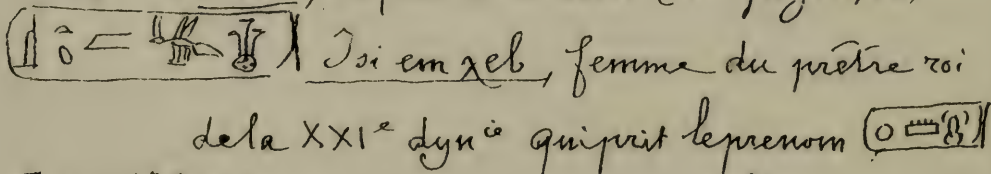 Isi em χeb, femme du prêtre roi
de la XXIe dynie qui prit le prenom